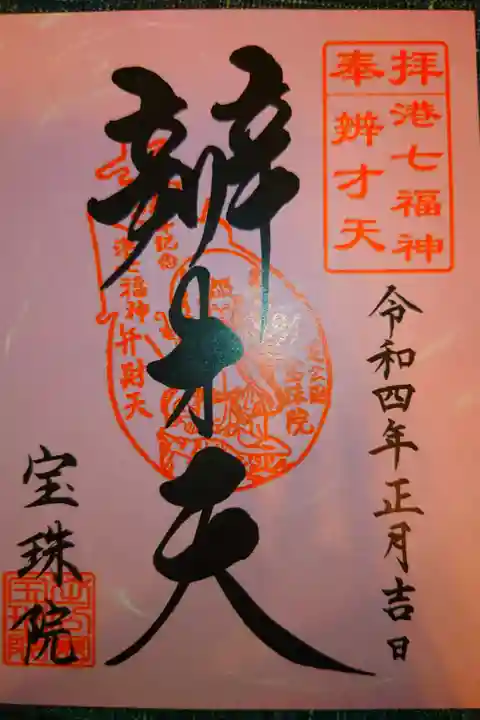 奉拝
港七福神
辨才天
令和四年正月吉日
辨才天
港七福神弁財天
宝珠院
宝珠院